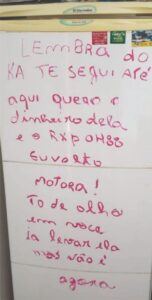 LEMBRA do
KA TE SEGUI ATÉ
aqui quero o
dinheiro dela
e o
Eu volto
MOTORA!
To de olho
em voce
ia levar ela
mas não é
agora